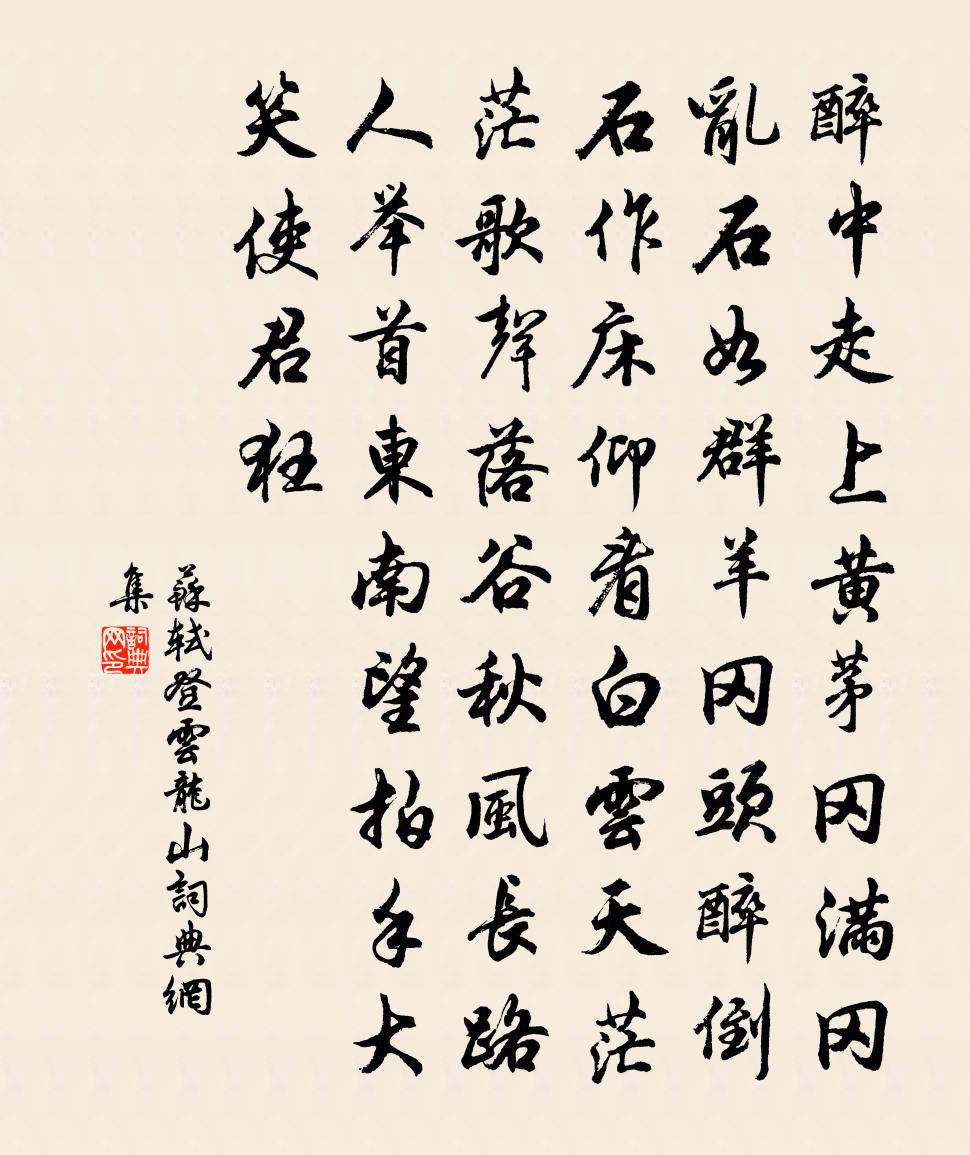 醉中走上黄茅冈满冈
亂石如群羊冈頭醉倒
石作床仰看白雲天茫
茫歌聲落谷秋風長路
人举首東南望拍手大
笑使君狂
蘇軾登雲龍山詞典網
集
詞典网印